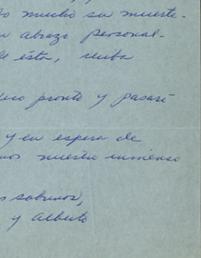 mucho su muerte.
abrazo personal-
de ésta, reciba
pronto y pasaré
y en espera de
nuestro inmenso
sobrinos,
y Alberto